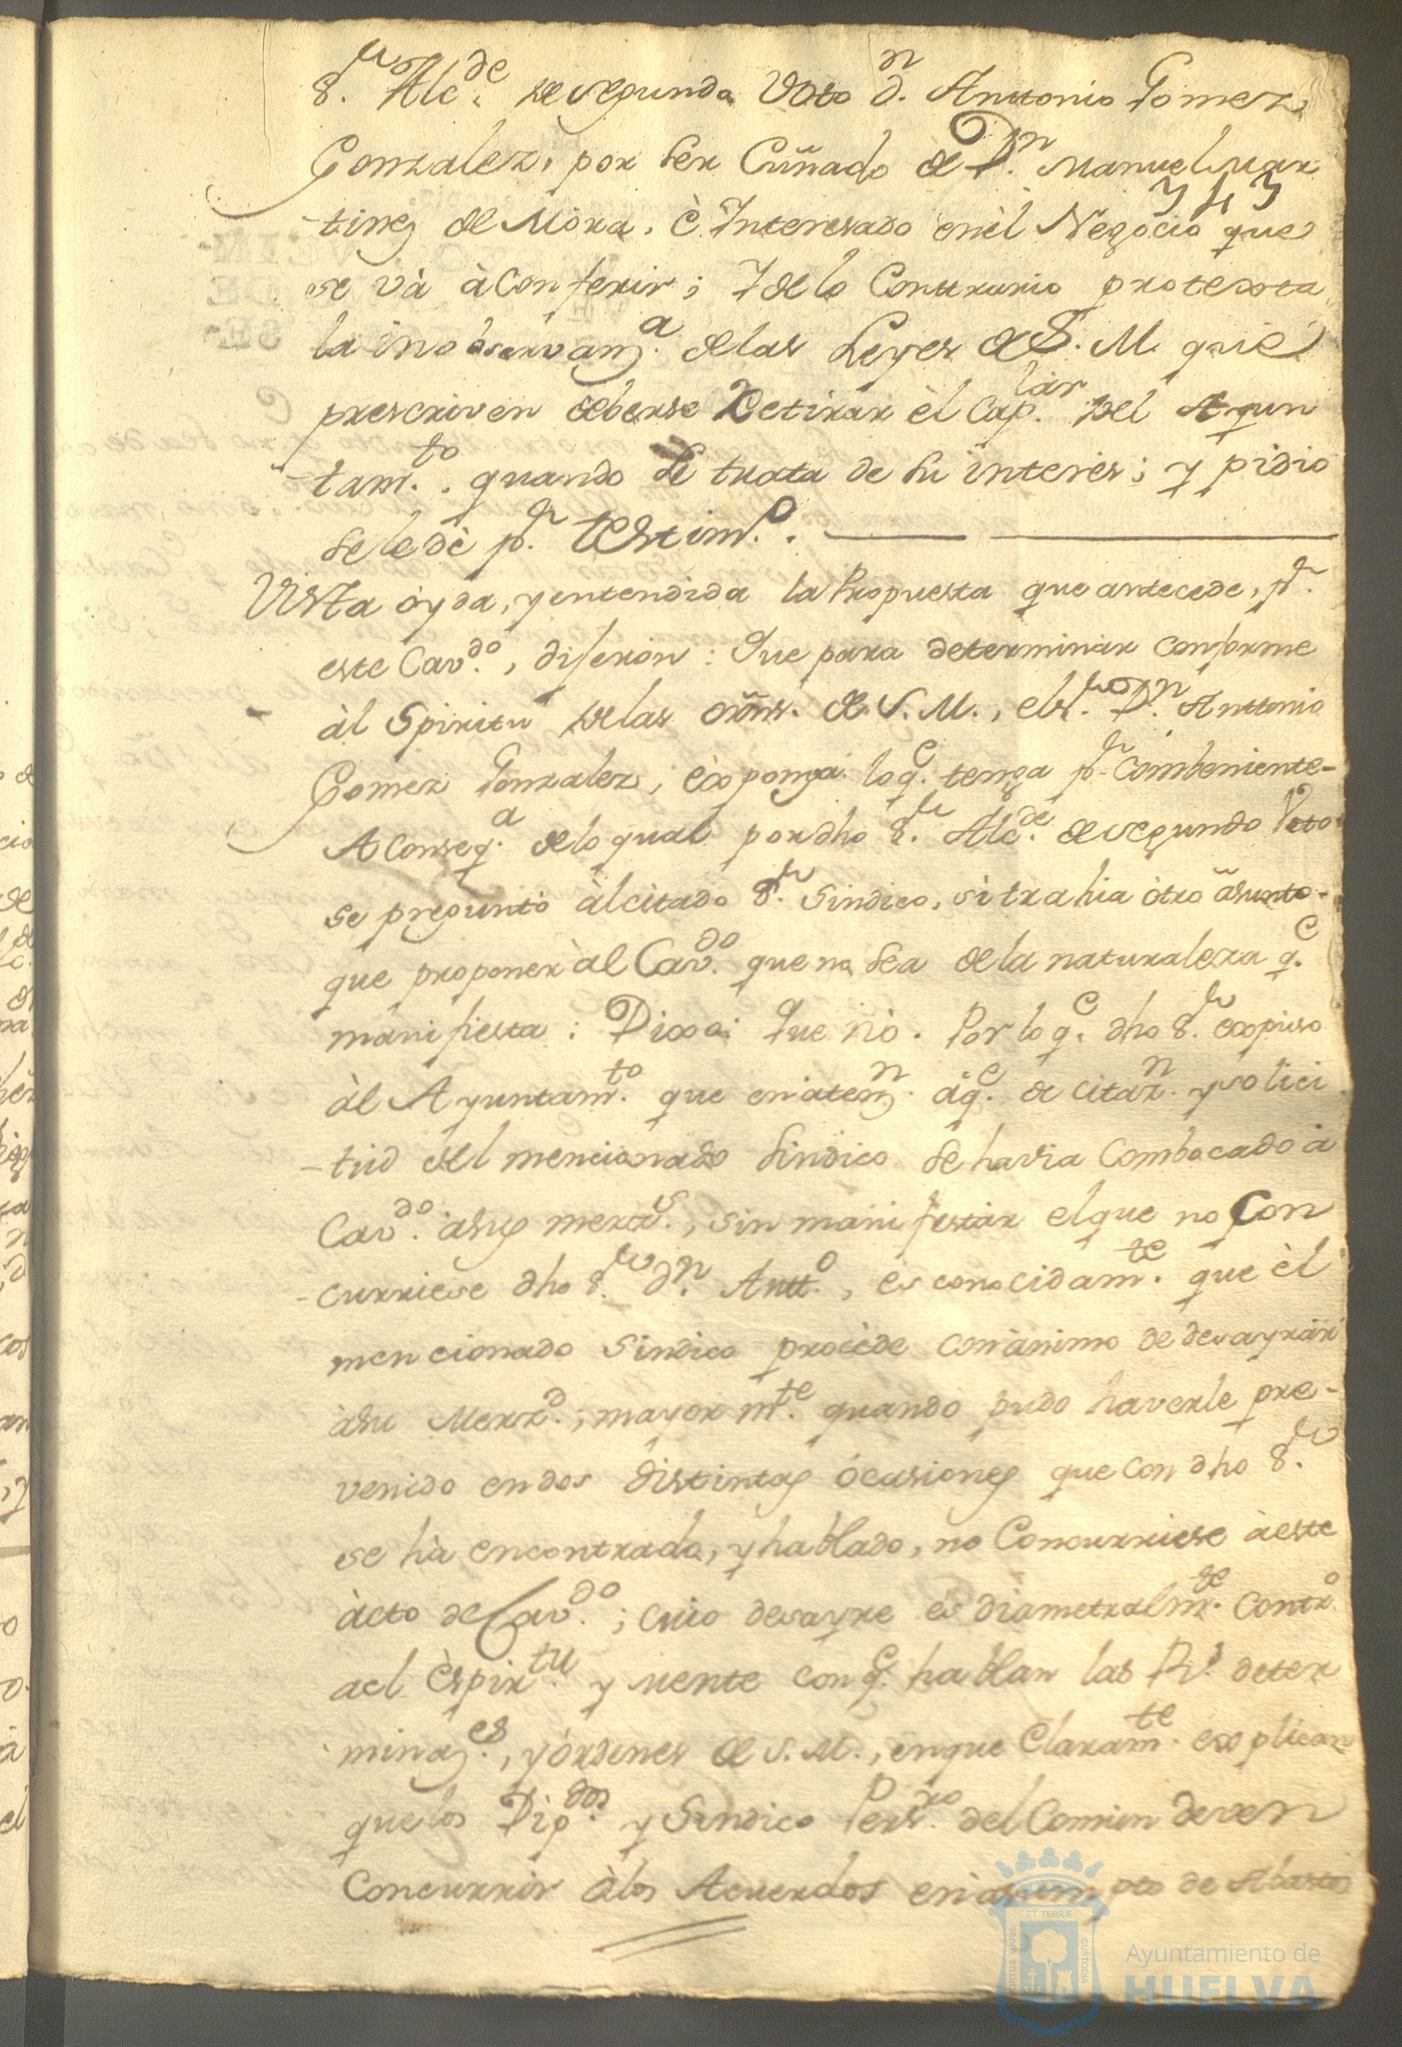 S.r Alc.de de segundo Voto d.n Anttonio Gomez
Gonzalez, por ser Cuñado de D.n Manuel Mar
343
-tinez de Mòra, è Interesado en èl Negocio que
se và à Conferir; Y de lo Conttrario protexta
la inobservanz.a de las Leyes de S. M. que
prescriven deberse Retirar èl Cap.lar del Ayun
-tam.to quando se trata de su interès; y pidio
se le dè p.r testim.o
Vista òyda, y entendida la Propuesta que antecede, p.r
este Cav.do, dijeron: Que para determinar conforme
àl Spiritu de las orñs. de S. M., el s.r D.n Anttonio
Gomez Gonzalez, èxponga lo q.e tenga p.r combeniente-
A conseq.a de lo qual por dho S.r Alc.de de segundo Voto
se preguntò àl citado S.r Sindico, si trahia òtro asunto-
que proponer àl Cav.do que no sea de la naturaleza q.e
manifiesta: Dixo: Que nò. Por lo q.e dho S.r expuso
àl Ayuntam.to que en aten.n à q.e de citaz.n y solici
-tud del mencionado Sindico se havia Combocado à
Cav.do à sus merz.s, sin manifestar el que no Con
-curriese dho S.r d.n Antt.o, es conocidam.te que èl
mencionado Sindico procède con ànimo de desayrar
à su Merz.d, mayorm.te quando pudo haverle pre-
venido en dos distintas òcasiones que con dho S.r
se hà encontrado, y hablado, no Concurriese à este
àcto de Cav.do; cuio desayre es diametralm.te contr.o
ael Èspir.tu y mente con q.e hablan las R.s deter
minaz.es, y òrdenes de S. M., en que Claram.te explican
que los Dip.dos y Sindico Pers.ro del Comun deven
Concurrir à los Acuerdos en asumpto de Abastos
Ayuntamiento de
HUELVA